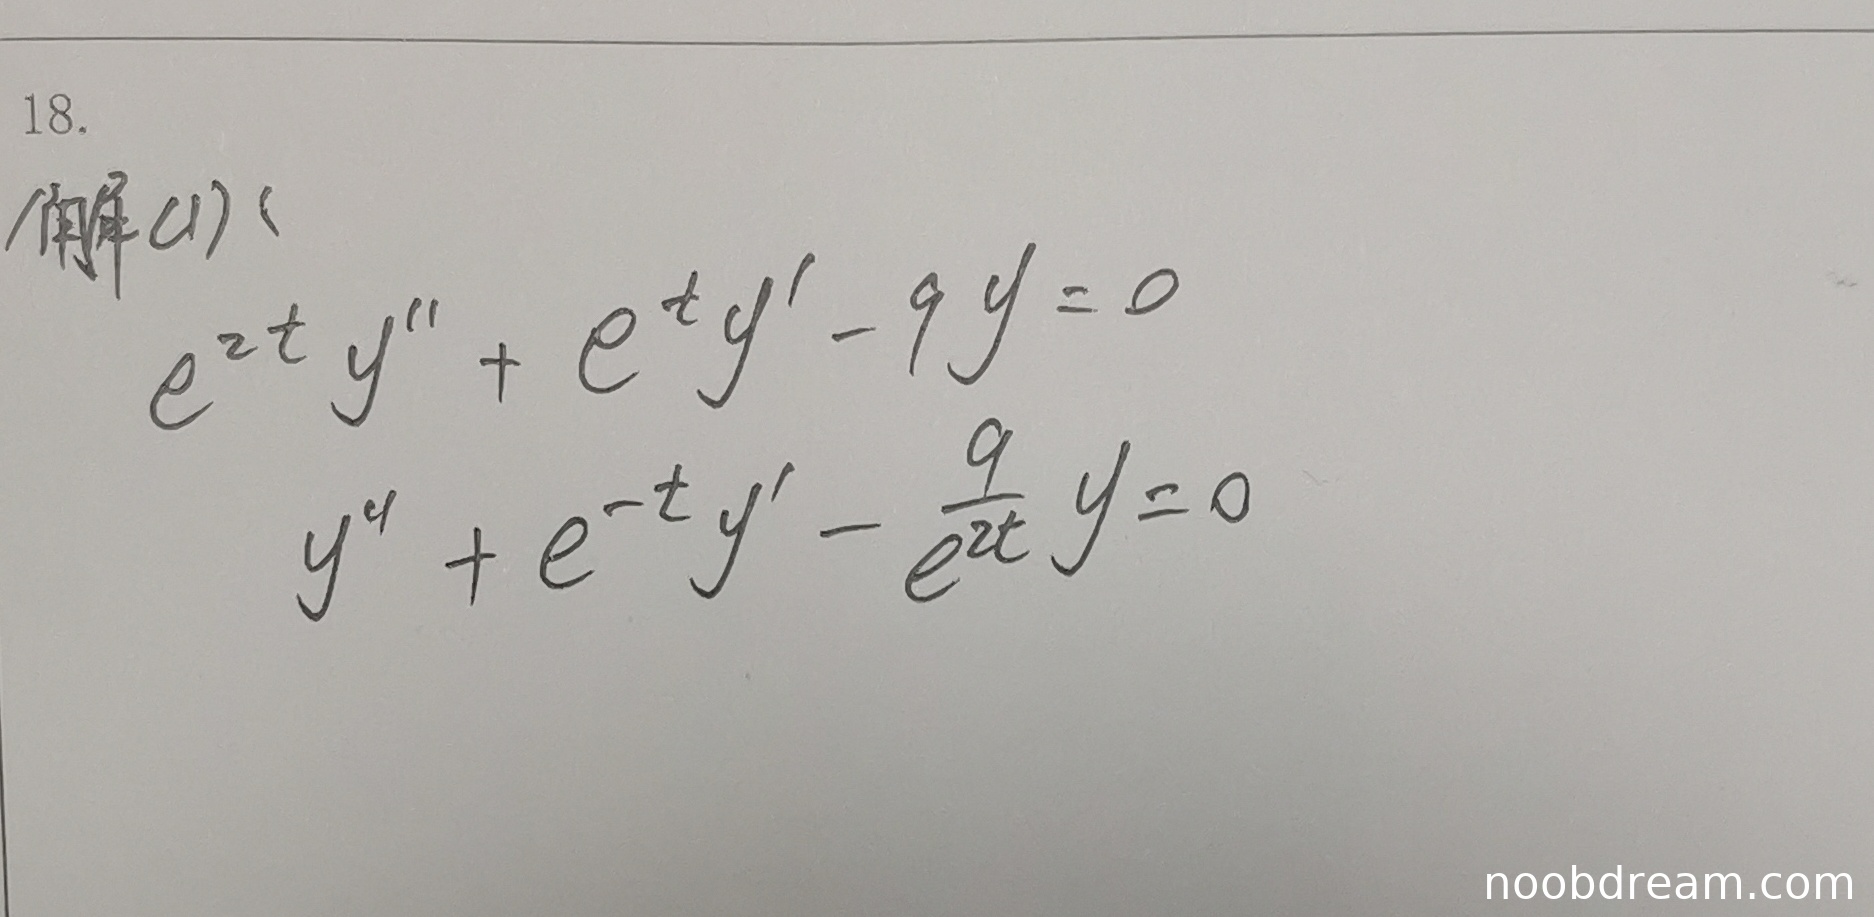 18.
解(1)(
e^{2t} y'' + e^t y' - 9y = 0
y'' + e^{-t} y' - \frac{9}{e^{2t}} y = 0
noobdream.com